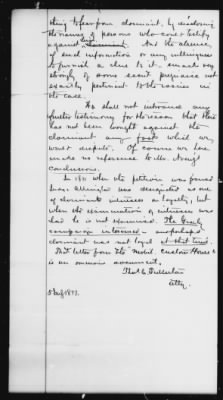 thing to fear from claimant, by disclosing
the names of persons who can testify
against him. And the absence
of such information or any willingness
to furnish a clue to it smacks very
strongly of some secret purpose not
exactly pertinent to the issues in
the case.
We shall not introduce any
further testimony for the reason that there
has not been brought against the
claimant any fact which we
must dispute. Of course we here
make no reference to Mr.
conclusions.
In 1871 when the petition was found
was designated as one
of claimants witnesses on loyalty, but
when the examination of witnesses was
had he is not examined. The
campaign intervened and perhaps
claimant was not loyal at that time.
That letter from the "Mobile Custom House"
is an ominous document.
Thos. C. Fullerton
Atty.
1877.